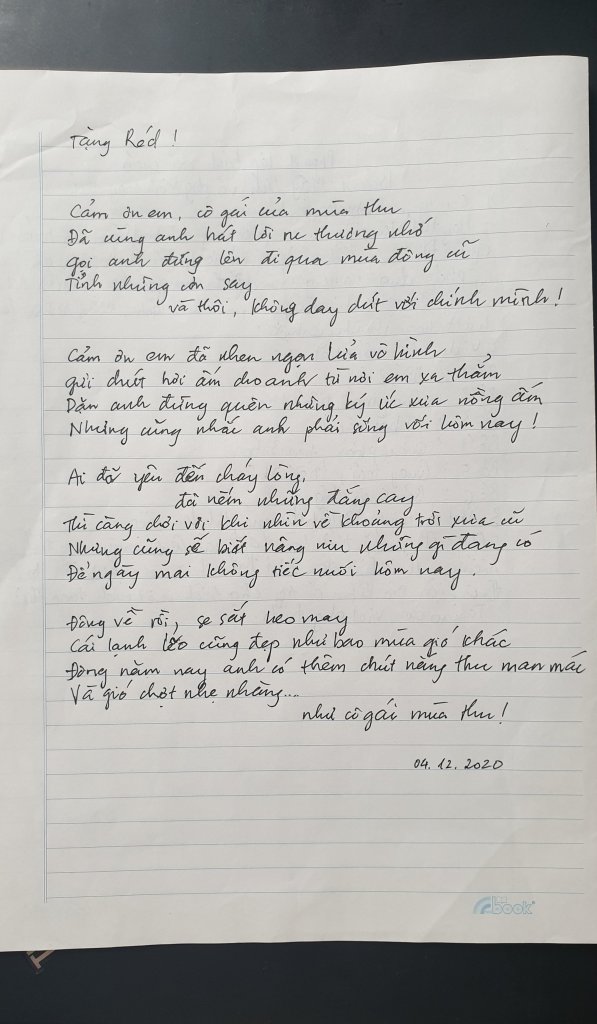 Tặng Réd !
Cảm ơn em, cô gái của mùa thu
Đã cùng anh hát lời ru thương nhớ
Gọi anh đứng lên đi qua mùa đông cũ
Tỉnh những cơn say
và thôi, không day dứt với chính mình !
Cảm ơn em đã nhen ngọn lửa vô hình
Gửi chút hơi ấm cho anh từ nơi em xa thẳm
Dặn anh đừng quên những ký ức xưa nồng ấm
Nhưng cũng nhắc anh phải sống với hôm nay !
Ai đã yêu đến cháy lòng,
đã nếm những đắng cay
Thì càng chới với khi nhìn về khoảng trời xưa cũ
Nhưng cũng sẽ biết nâng niu những gì đang có
Để ngày mai không tiếc nuối hôm nay .
Đông về rồi, se sắt heo may
Cái lạnh lẽo cũng đẹp như bao mùa gió khác
Đông năm nay anh có thêm chút nắng thu man mác
Và gió chợt nhẹ nhàng....
như cô gái mùa thu !
04.12.2020
book